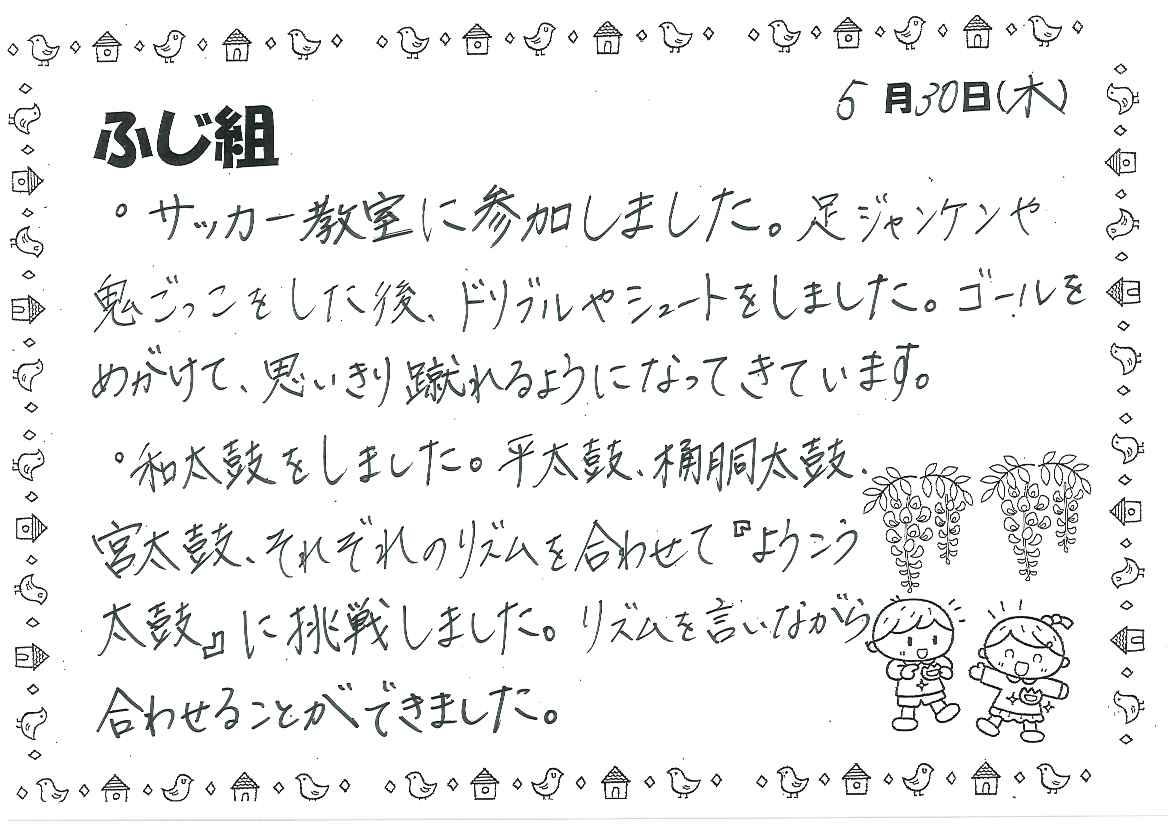 5月30日(木)
ふじ組
。サッカー教室に参加しました。足ジャンケンや
鬼ごっこをした後、ドリブルやシュートをしました。ゴールを
めがけて、思いきり蹴れるようになってきています。
。和太鼓をしました。平太鼓、桶胴太鼓、
宮太鼓、それぞれのリズムを合わせて『ようこう
太鼓』に挑戦しました。リズムを言いながら
合わせることができました。